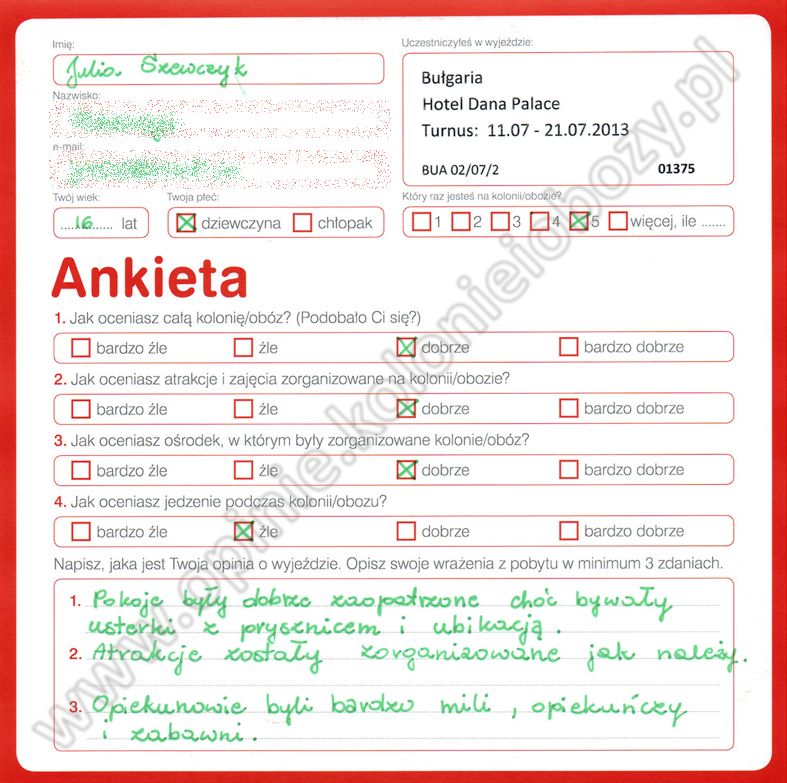 Imię:
Julia Szewczyk
Nazwisko:
e-mail:
Uczestniczyłeś w wyjeździe:
Bułgaria
Hotel Dana Palace
Turnus: 11.07 - 21.07.2013
BUA 02/07/2 01375
Twój wiek:
16 lat
Twoja płeć:
dziewczyna chłopak
Który raz jesteś na kolonii/obozie?
1 2 3 4 5 więcej, ile .......
Ankieta
1. Jak oceniasz całą kolonię/obóz? (Podobało Ci się?)
bardzo źle źle dobrze bardzo dobrze
2. Jak oceniasz atrakcje i zajęcia zorganizowane na kolonii/obozie?
bardzo źle źle dobrze bardzo dobrze
3. Jak oceniasz ośrodek, w którym były zorganizowane kolonie/obóz?
bardzo źle źle dobrze bardzo dobrze
4. Jak oceniasz jedzenie podczas kolonii/obozu?
bardzo źle źle dobrze bardzo dobrze
Napisz, jaka jest Twoja opinia o wyjeździe. Opisz swoje wrażenia z pobytu w minimum 3 zdaniach.
1. Pokoje były dobrze zaopatrzone choć bywały
usterki z prysznicem i ubikacją.
2. Atrakcje zostały zorganizowane jak należy.
3. Opiekunowie byli bardzo mili, opiekuńczy
i zabawni.
www.opinie.kolonieiobozy.pl